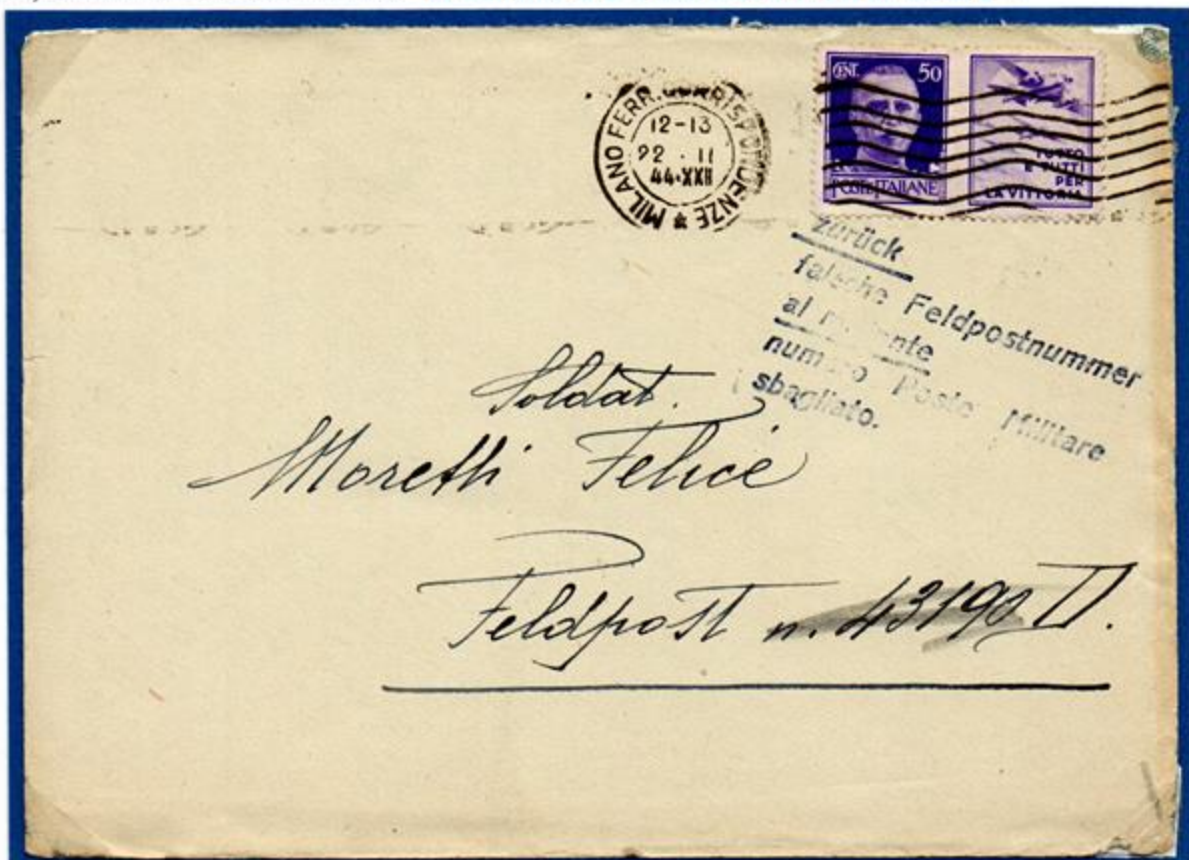 MILANO FERR. CORRISPONDENZE
12-13
22 · II
44·XXII
CENT. 50
POSTE ITALIANE
TUTTO
E TUTTI
PER
LA VITTORIA
zurück
falsche Feldpostnummer
al mittente
numero Poste Militare
sbagliato.
Soldat.
Moretti Felice
Feldpost n. 43190 D.